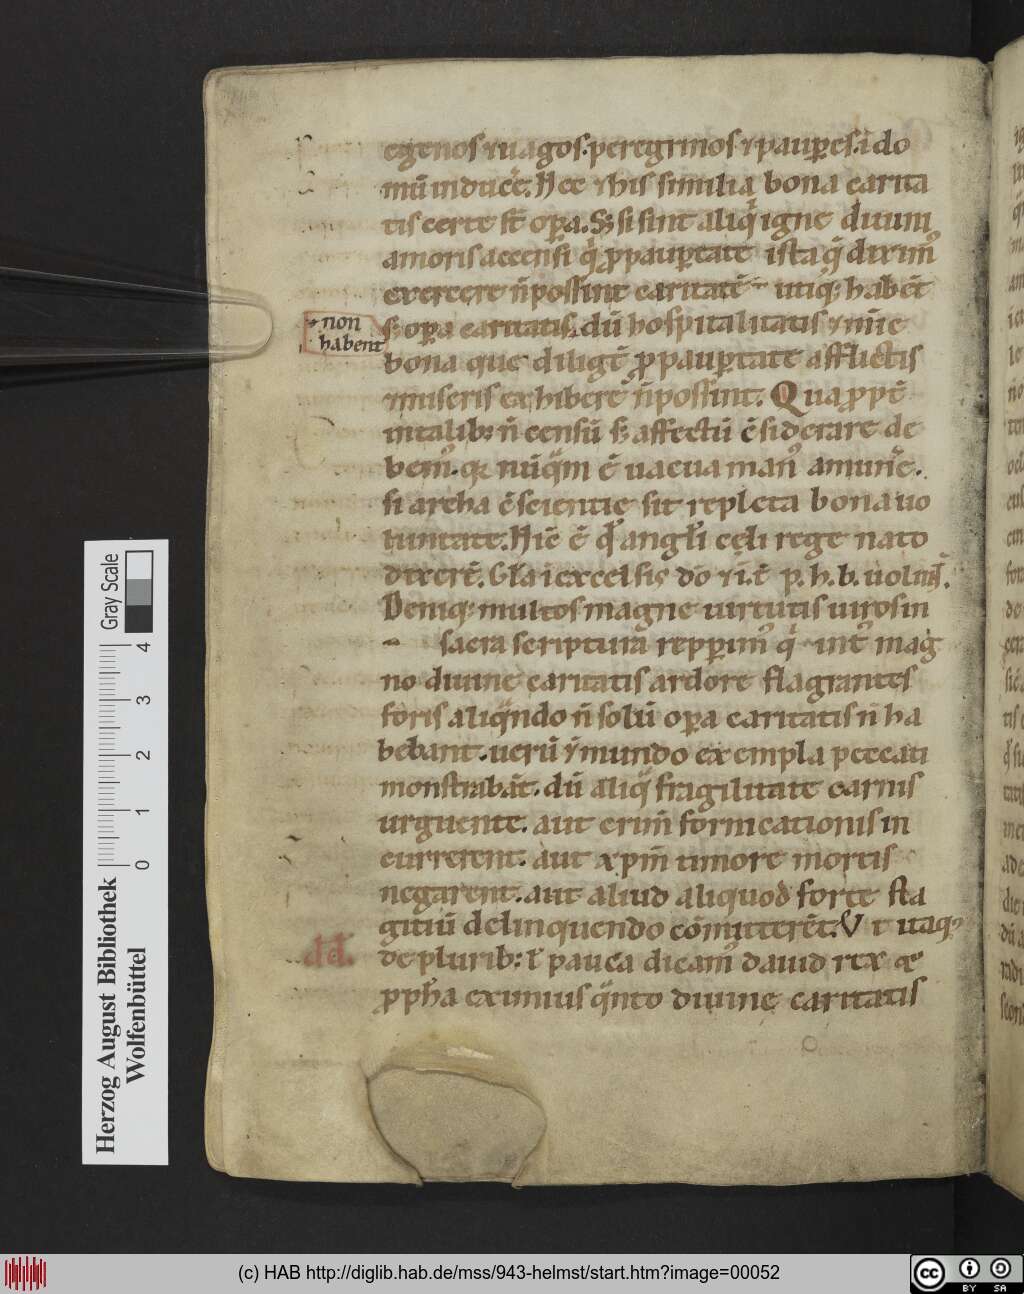 egenos ⁊ uagos. peregrinos ⁊ pauꝑes. i do
mū inducēt. Hec ⁊ his similia bona carita
tis certe st̄ oꝑa. Sꝫ si sint aliq̇ igne diuini
amoris accensi q̇ ꝓ pauꝑtate ista q̄ dixim᷒
exercere n̄ possint caritatē utiqꝫ habēt
non
habent
sꝫ oꝑa caritatis. dū hospitalitatis ⁊ mīe
bona que diligt̄ ꝓ pauꝑtate afflictis
⁊ miseris exhibere n̄ possint. Qua ꝓpt̄
in talibꝫ n̄ censū sꝫ affectū ꝯ̄siderare de
bem᷒. qꝛ nūq̄m ē uacua man᷒ a munē.
si archa ꝯ̄scientie sit repleta bona uo
luntate. Hīc ē qđ angli celi rege nato
dixerт̄. Gła i excelsis dō ⁊ i. t̄ p. h. b. uolūt̄.
Deniqꝫ multos magne uirtutis uiros in
sacra scriptura repꝑim᷒ q̇ int̄ mag
no diuine caritatis ardore flagrantes
foris aliqn̄do n̄ solū oꝑa caritatis n̄ ha
bebant. uerū ⁊ mundo exempla peccati
monstrabāt. dū aliq̇ fragilitate carnis
urguente. aut crim̄ fornicationis in
currerent. aut xpm̄ timore mortis
negarent. aut aliud aliquod forte fla
gitiū delinquendo cōmitterēt. Vt itaqꝫ
dd̄.
de pluribꝫ ł pauca dicam᷒ dauid rex ⁊
ꝓpħa eximius qn̄to diuine caritatis
Herzog August Bibliothek
Wolfenbüttel
0 1 2 3 4
Gray Scale
(c) HAB http://diglib.hab.de/mss/943-helmst/start.htm?image=00052
cc BY SA